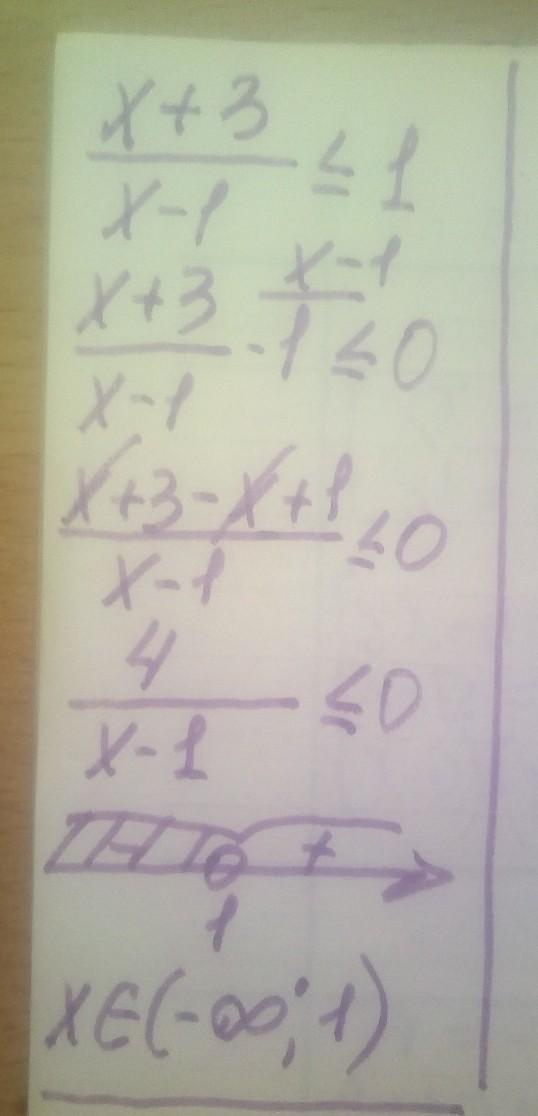 x+3
x-1 ≤ 1
x+3 x-1
x-1 -1 ≤ 0
x+3-x+1
x-1 ≤ 0
4
x-1 ≤ 0
- +
1
x∈(-∞; 1)